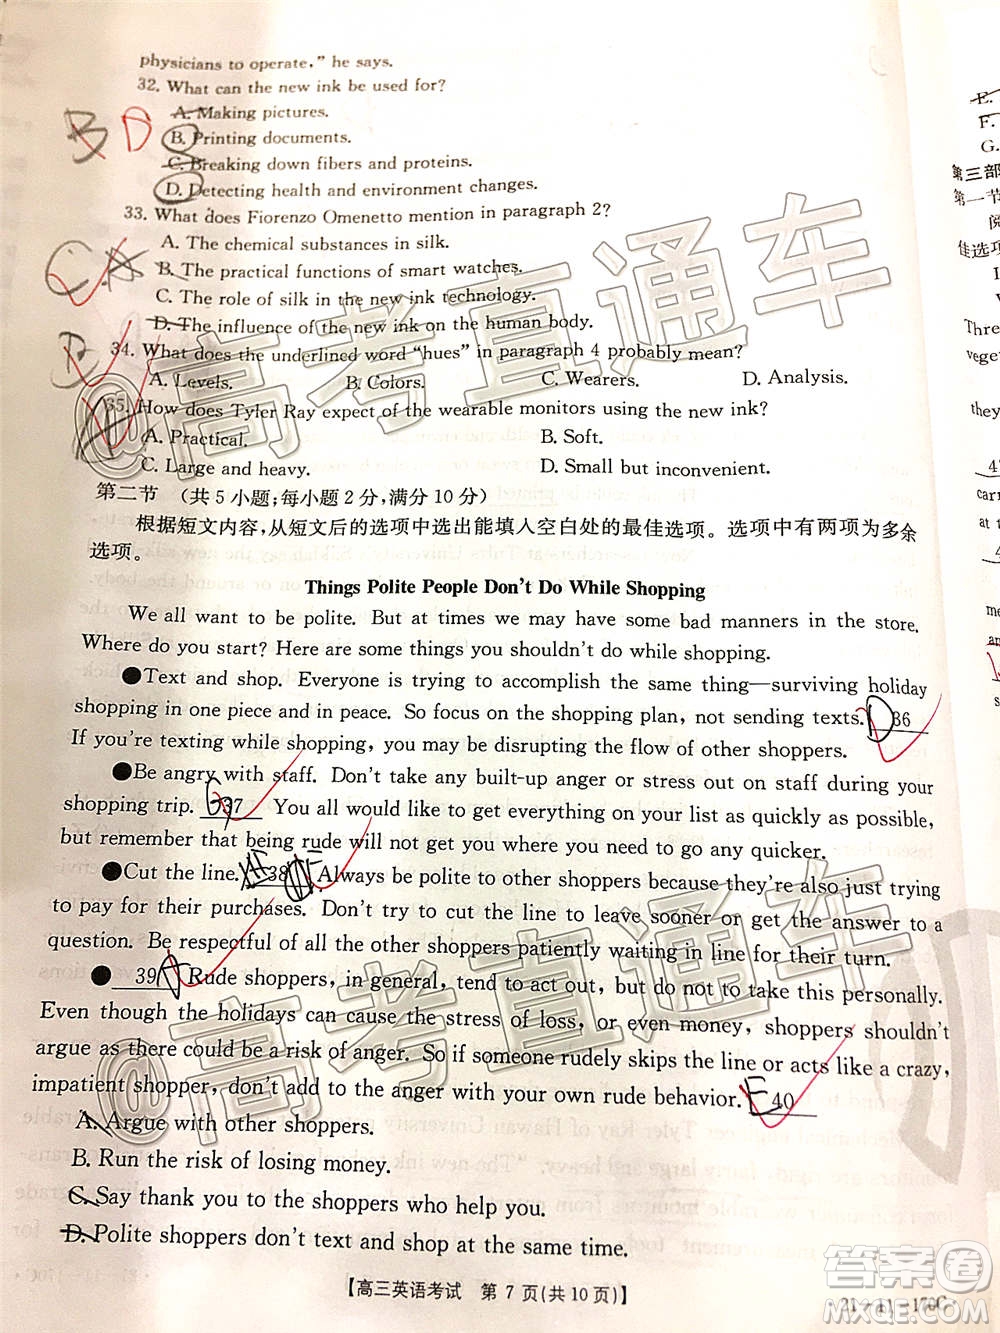 physicians to operate," he says.
32. What can the new ink be used for?
A. Making pictures.
B. Printing documents.
C. Breaking down fibers and proteins.
D. Detecting health and environment changes.
B D
33. What does Fiorenzo Omenetto mention in paragraph 2?
A. The chemical substances in silk.
B. The practical functions of smart watches.
C. The role of silk in the new ink technology.
D. The influence of the new ink on the human body.
C A
34. What does the underlined word "hues" in paragraph 4 probably mean?
A. Levels. B. Colors. C. Wearers. D. Analysis.
B
35. How does Tyler Ray expect of the wearable monitors using the new ink?
A. Practical. B. Soft.
C. Large and heavy. D. Small but inconvenient.
A
第二节 (共5小题;每小题2分,满分10分)
根据短文内容,从短文后的选项中选出能填入空白处的最佳选项。选项中有两项为多余
选项。
Things Polite People Don't Do While Shopping
We all want to be polite. But at times we may have some bad manners in the store.
Where do you start? Here are some things you shouldn't do while shopping.
●Text and shop. Everyone is trying to accomplish the same thing—surviving holiday
shopping in one piece and in peace. So focus on the shopping plan, not sending texts. D 36
If you're texting while shopping, you may be disrupting the flow of other shoppers.
●Be angry with staff. Don't take any built-up anger or stress out on staff during your
shopping trip. G 37 You all would like to get everything on your list as quickly as possible,
but remember that being rude will not get you where you need to go any quicker.
●Cut the line. 38 F Always be polite to other shoppers because they're also just trying
to pay for their purchases. Don't try to cut the line to leave sooner or get the answer to a
question. Be respectful of all the other shoppers patiently waiting in line for their turn.
● 39 A Rude shoppers, in general, tend to act out, but do not to take this personally.
Even though the holidays can cause the stress of loss, or even money, shoppers shouldn't
argue as there could be a risk of anger. So if someone rudely skips the line or acts like a crazy,
impatient shopper, don't add to the anger with your own rude behavior. E 40
A. Argue with other shoppers.
B. Run the risk of losing money.
C. Say thank you to the shoppers who help you.
D. Polite shoppers don't text and shop at the same time.
【高三英语考试 第7页(共10页)】
21-11-170C
E.
F.
G
第三部
第一节
阅
佳选项
Three
veget
they
carr
at t
me
an
s
@高考直通车
@高考直通车
答案圈
MXQE.COM